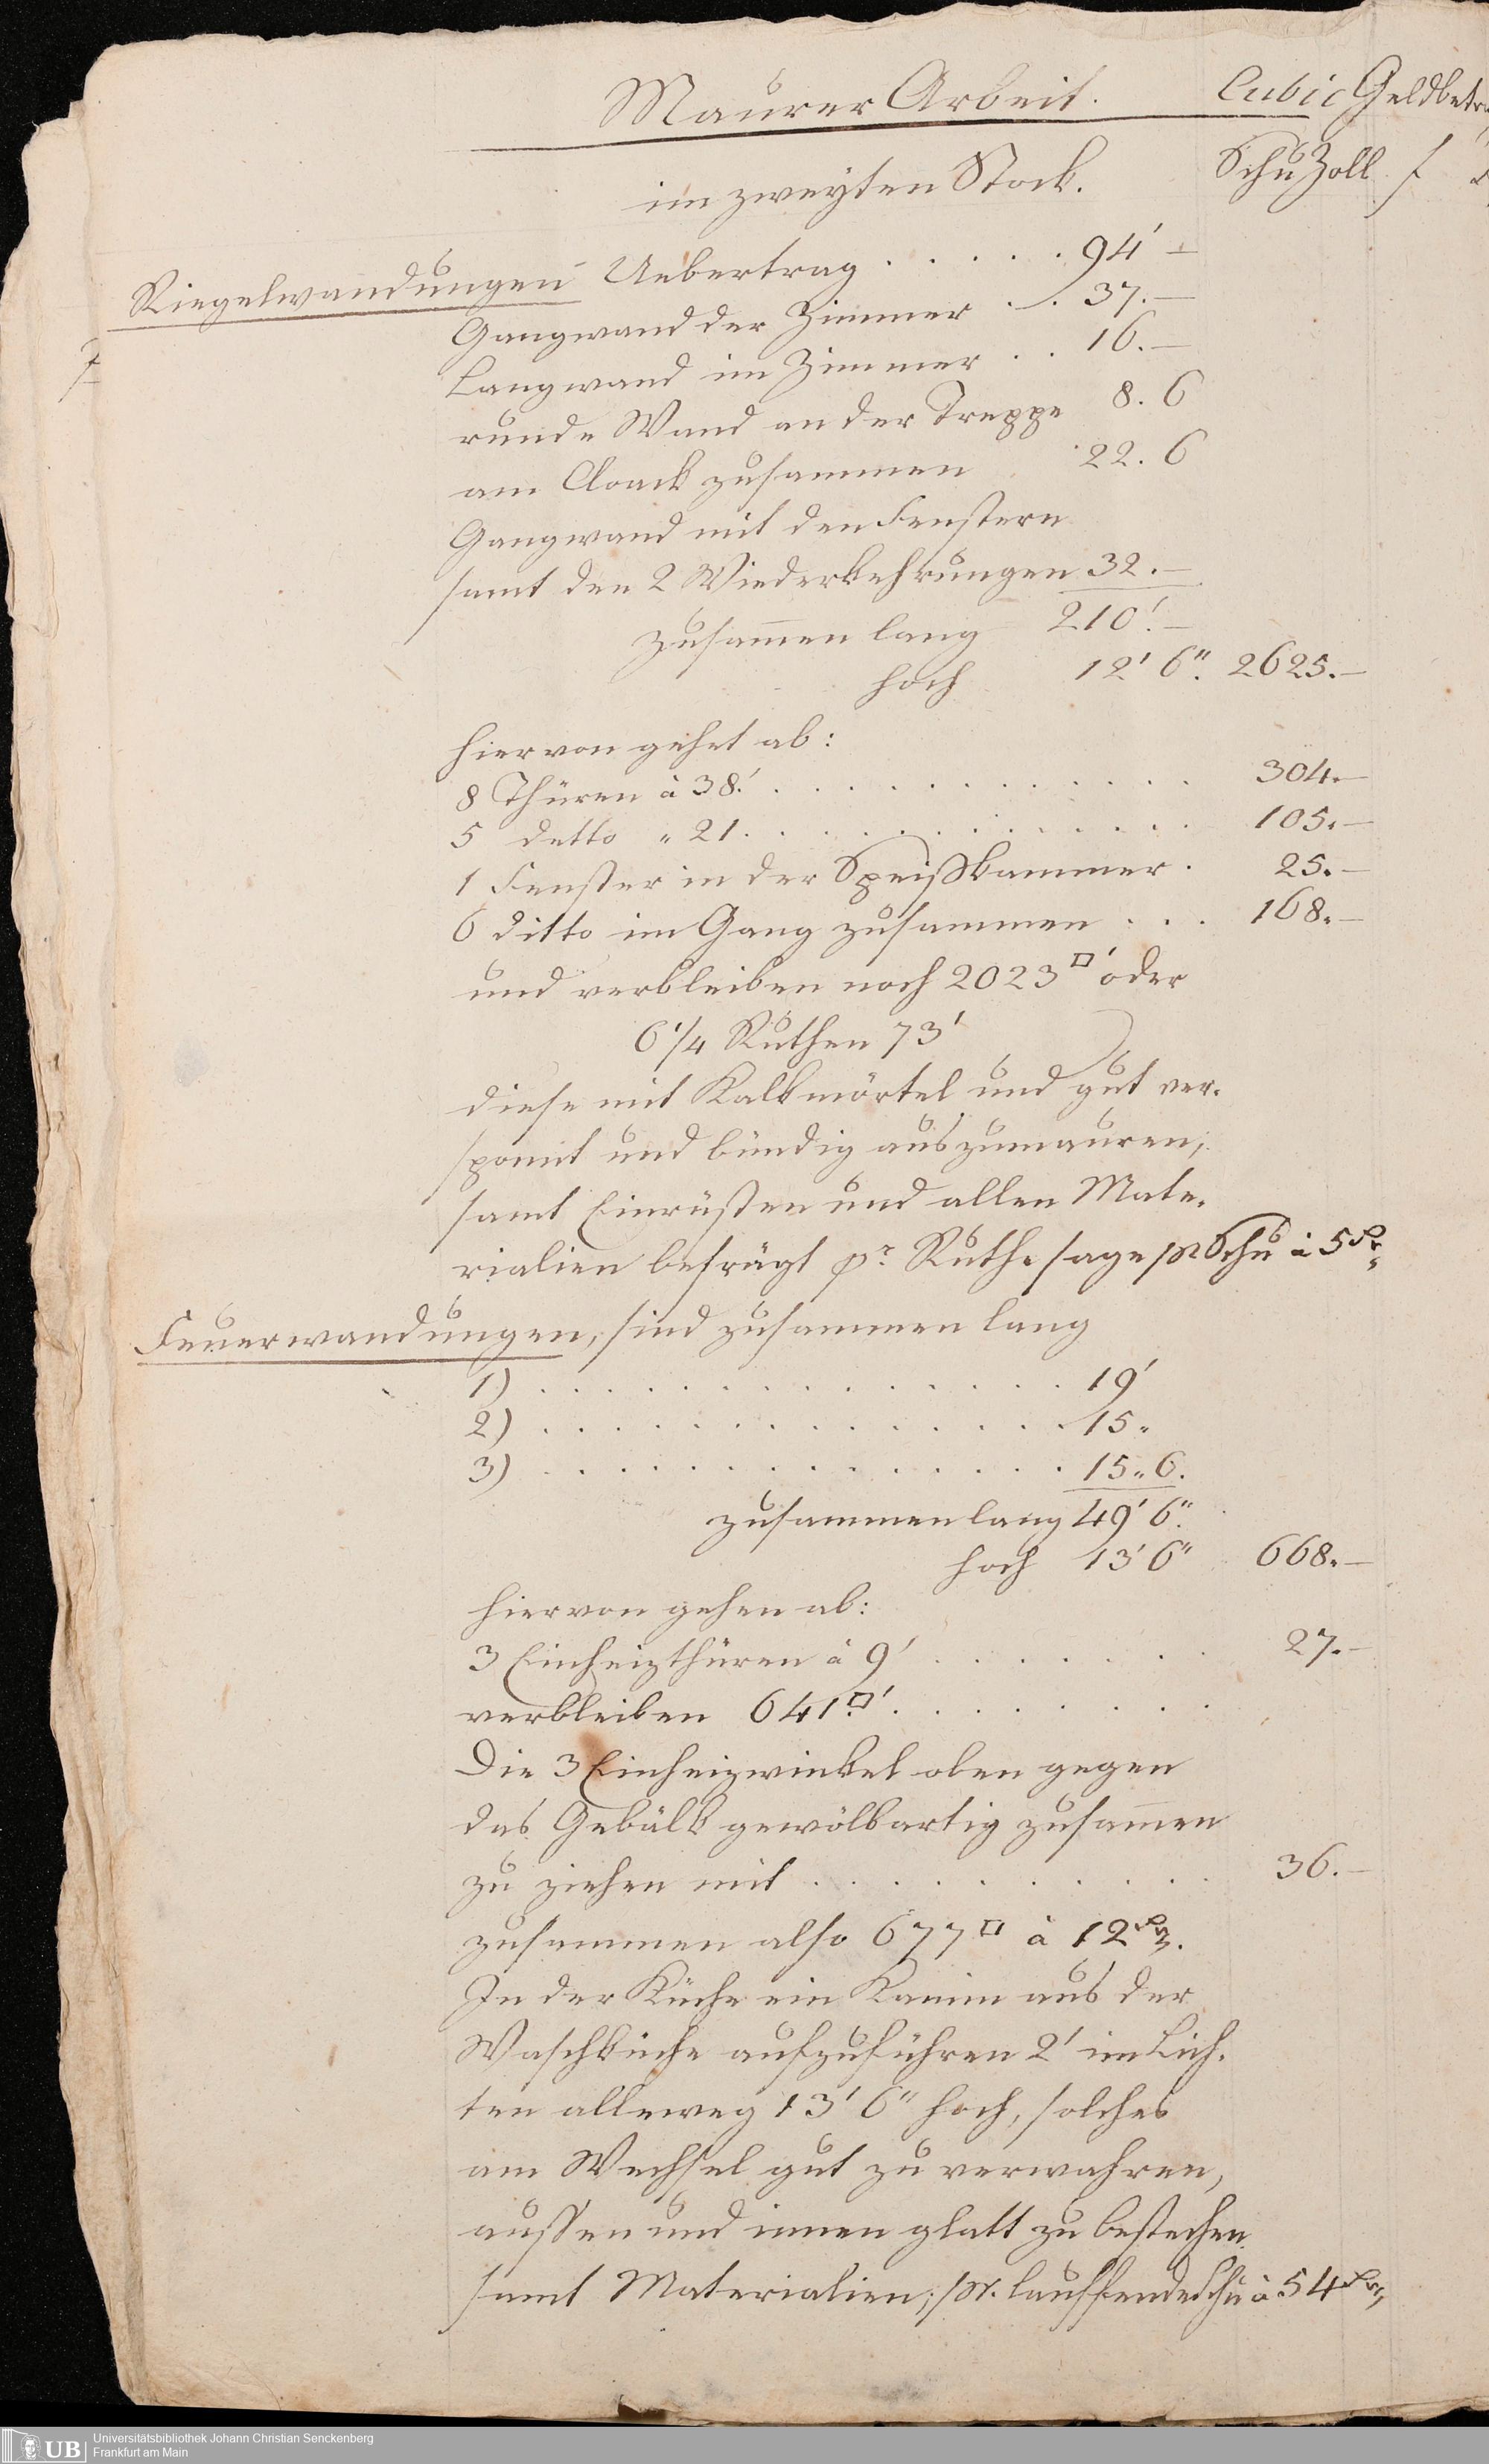 Maurer Arbeit. Cubic Geldbetr
im zweyten Stock. Schu Zoll f
Riegelwandungen Uebertrag . . . . . 94' –
Gangwand der Zimmer . . 37. –
Langwand im Zimmer . . 16. –
runde Wand an der Treppe 8. 6
am Cloack zusammen 22. 6
Gangwand mit den Fenstern
samt den 2 Wiederkehrungen 32. –
zusam̄en lang 210'. –
hoch 12' 6". 2625. –
hiervon gehet ab:
8 Thüren à 38.' . . . . . . . . . . 304. –
5 detto " 21 . . . . . . . . . . 105. –
1 Fenster in der Speißkammer . 25. –
6 ditto im Gang zusammen . . . 168. –
und verbleiben noch 2023□' oder
6 1/4 Ruthen 73'
diese mit Kalkmörtel und gut ver-
spannt und bündig auszumauren,
samt Einrüsten und allen Mate-
rialien beträgt pr. Ruthe sage pr Schu à 5 Xr.
Feuerwandungen, sind zusammen lang
1) . . . . . . . . . . . . . 19'
2) . . . . . . . . . . . . . 15"
3) . . . . . . . . . . . . . 15" 6.
zusammen lang 49' 6".
hoch 13' 6" 668. –
hiervon gehen ab:
3 Einheizthüren à 9' . . . . . . 27. –
verbleiben 641□' . . . . . . .
Die 3 Einheizwinkel oben gegen
das Gebälk gewölbartig zusam̄en
zu ziehen mit . . . . . . . . 36. –
zusammen also 677□ à 12 Xr.
In der Küche ein Kamin aus der
Waschküche aufzuführen 2' im Lich-
ten alleweg 13' 6" hoch, solches
am Wechsel gut zu verwahren,
aussen und innen glatt zu bestechen
samt Materialien, pr. lauffende Schu à 54 Xr.
UB Universitätsbibliothek Johann Christian Senckenberg
Frankfurt am Main